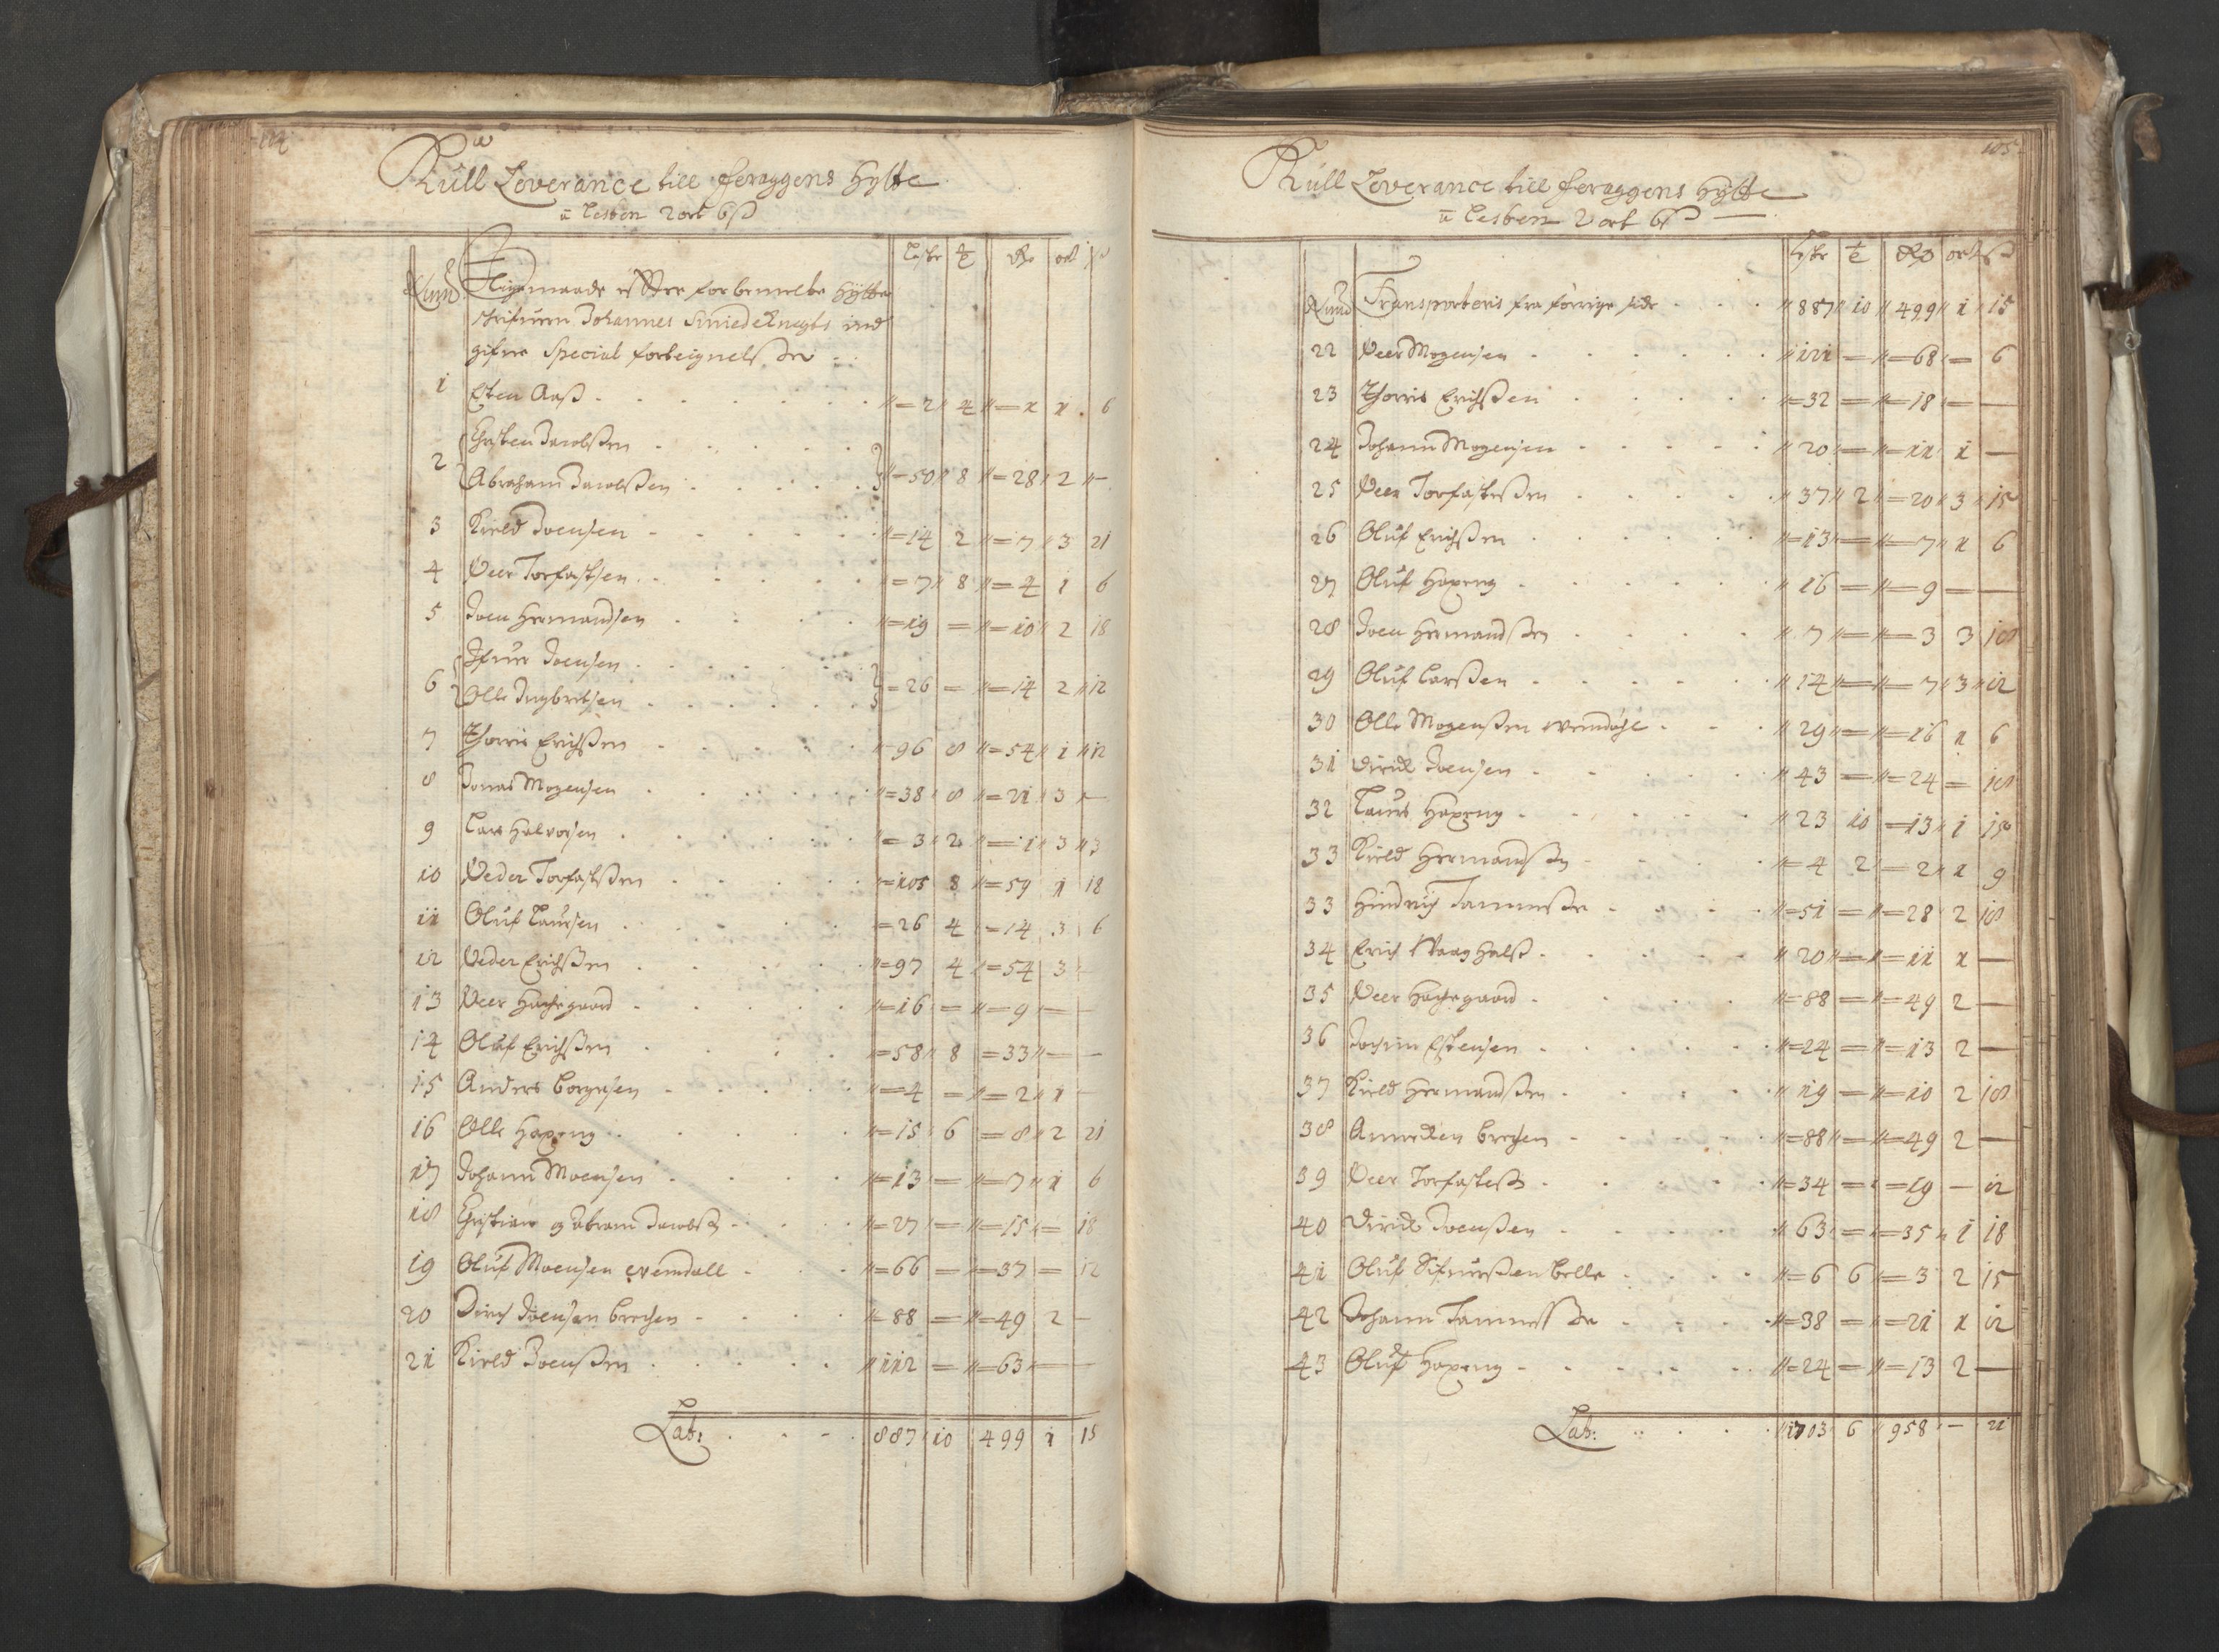 104
Kull Leverance till feraggens Hytte
a Lesten 2 ort 6 ß
Leste t/2 Rdr ort ß
Kuni Ligemaade effter forbemelte Hytte
schrifuern Johannes Smiedeknegts ind
gifne Special forteignelsser
1 Esten Aaß "=2" 4 "=1 1 6
2 Christen Jacobßen
Abraham Jacobßen "=50" 8 "=28" 2 "–
3 Kield Joensen "=14 2 "=7" 3 21
4 Peer Torfastsen "=7" 8 "=4 1 6
5 Joen Hermandsen "=19 = "=10" 2 18
6 Ifuer Joensen
Olle Ingbretsen "=26 = "=14 2 "12
7 Thorris Erichßen "96 8 "=54" 1 "12
8 Jonas Mogensen "=38" 8 "=21" 3 –
9 Lars Halvorsen "=3" 2 "=1" 3 "3
10 Peder Torfastßen "=105 8 "=59 1 18
11 Oluf Laursen =26 4 =14 3 6
12 Peder Erichßen "=97 4 "=54 3 –
13 Peer Hachegaard "=16 = "=9 – –
14 Oluf Erichßen "=58" 8 =33" – –
15 Anders Borgesen "=4 = "=2" 1 –
16 Olle Haxeng "=15 6 =8" 2 21
17 Johann Moensen "=13 = "=7" 1 6
18 Christian og Abram Jacobß "=27 = "=15 = 18
19 Oluf Moensen Wemdall "=66 = "=37 = 12
20 Dirich Joensen Brechen "=88 = "=49 2 –
21 Kield Joensßen "112 = "=63 – –
Lat: 887" 10 499 1 15
105
Kull Leverance till feraggens Hytte
a Lesten 2 ort 6 ß
Lster t/2 Rdr ort ß
Kuni Transporteris fra forrige side "887" 10 "499" 1 15
22 Peer Mogensen "121 = "=68" = 6
23 Thorris Erichßen "=32 = "=18 – –
24 Johann Mogensen "20" = "=11 1 –
25 Peer Torfastßen "37" 2 "=20" 3 "15
26 Oluf Erichßen "=13" = "=7" 1 6
27 Oluf Haxeng "16 = "=9 – –
28 Joen Hermandßen "7" = "=3 3 18
29 Oluf Larßen "14" = "=7" 3 "12
30 Olle Mogensßen Wemdahl "29" = "=16 1 6
31 Dirich Joensen "43 = "=24 = 18
32 Laurs Haxeng "23 10 =13" 1 15
33 Kield Hermandßen "=4 2 "=2" 1 9
33 Hindrich Tammesßen "=51 = "=28 2 18
34 Erich Waaghalß "20" = "=11 1 –
35 Peer Hachegaard "=88 = "=49 2 –
36 Jochim Estensen "=24 = "=13 2 –
37 Kield Hermandßen "19 = "=10 2 18
38 Anneken Brechen "=88" = "=49 2 –
39 Peer Torfasteß "=34 = "=19 – 12
40 Dirich Joensßen "63 = "=35" 1 18
41 Oluf Sifuerßen Belle "=6 6 "=3 2 15
42 Johann Tammesßen "=38 = "=21 1 12
43 Oluf Haxeng "=24 = "=13 2 –
Lat: "1703 6 "958" – 21